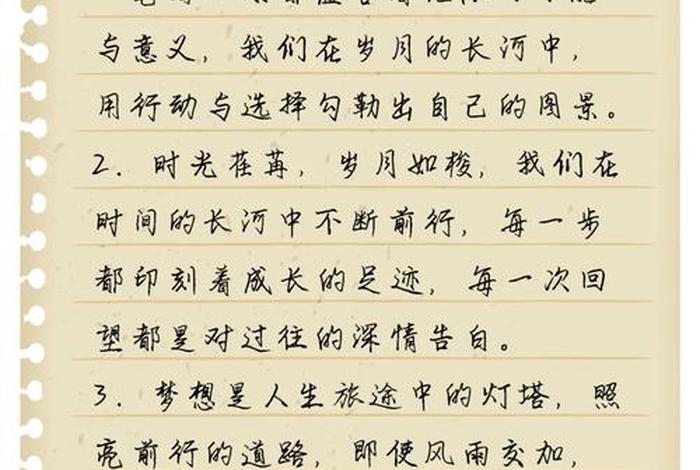 与意义，我们在岁月的长河中，
用行动与选择勾勒出自己的图景。
2. 时光荏苒，岁月如梭，我们在
时间的长河中不断前行，每一步
都印刻着成长的足迹，每一次回
望都是对过往的深情告白。
3. 梦想是人生旅途中的灯塔，照
亮前行的道路，即使风雨交加，